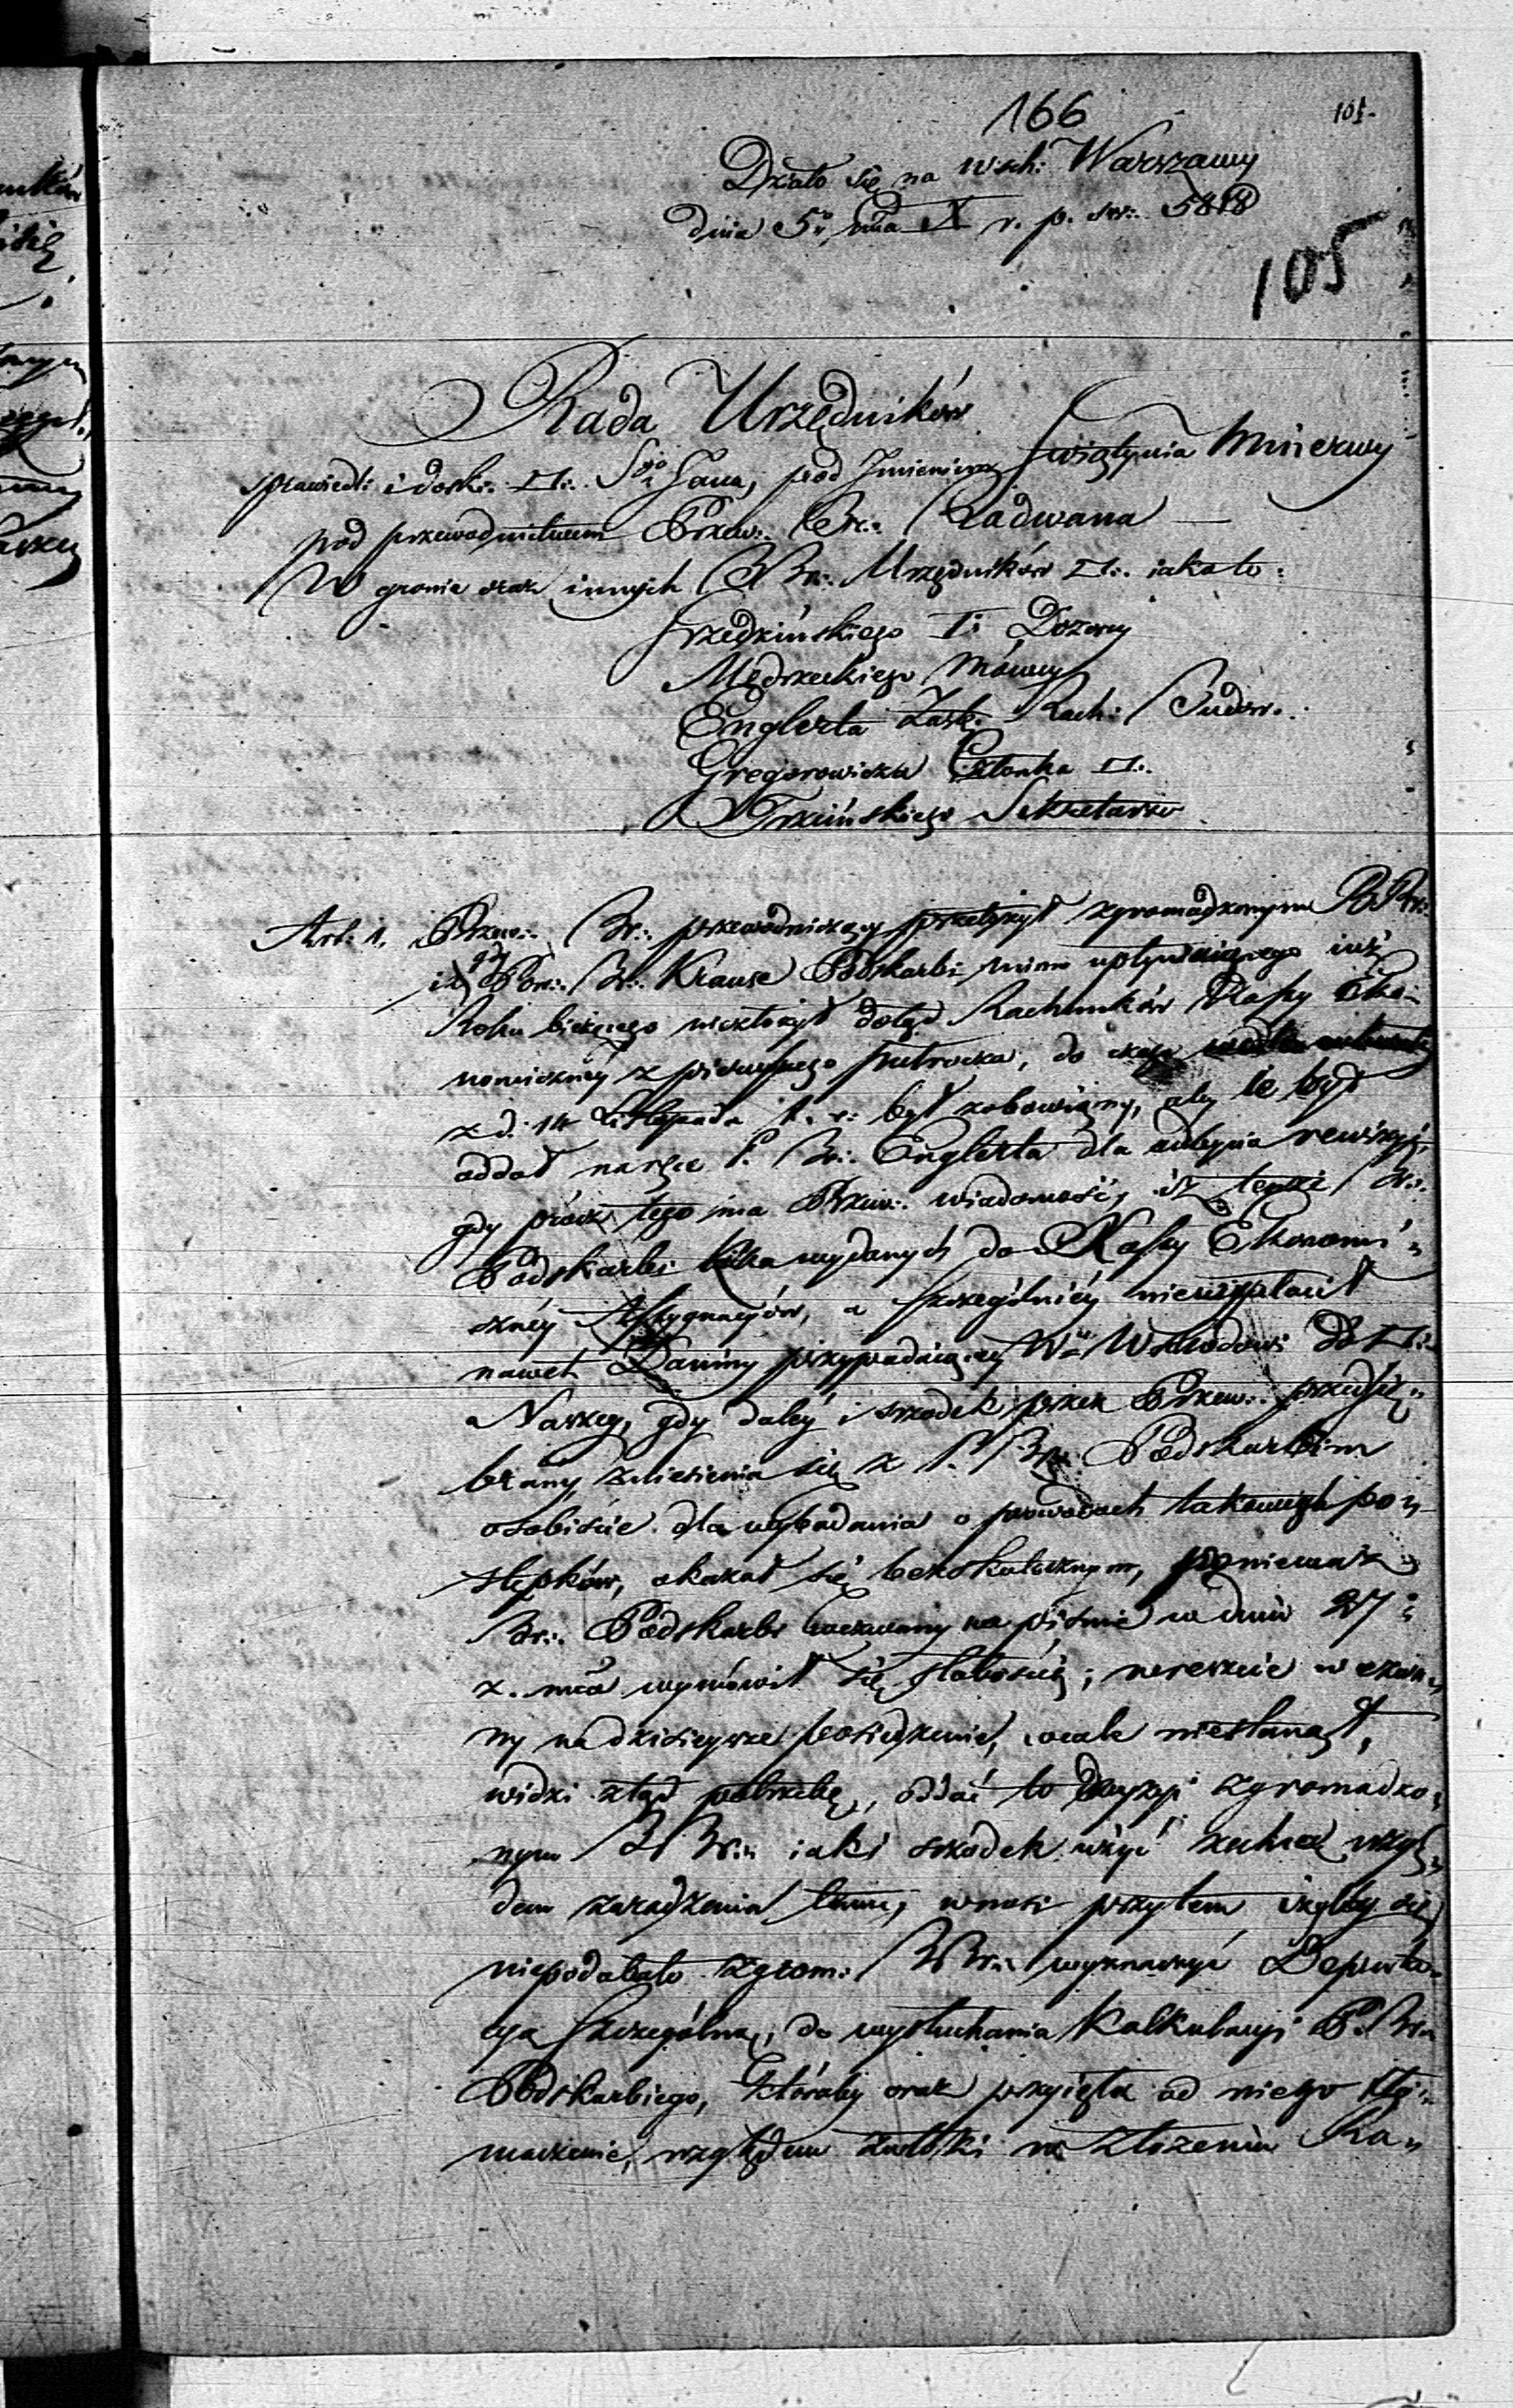 166
101.
Działo się na Wsch: Warszawy
dnia 5º mca X r. p. sw:. 5818
105
Rada Urzędników
sprawiedl: i dosk:. □:. Sgo Jana, pod Imieniem Swiątynia Minerwy
pod przewodnictwem Przew:. Br:. Radwana —
W gronie oraz innych BBr:. Urzędników □:. iakoto:
Srzedzińskiego I: Dozorcy
Mędrzeckiego Mówcy
Englerta Zast. Rach: Budow:.
Gregorowicza Członka □:.
Trzcińskiego Sekretarza
Art: 1. Przew:. Br:. przewodniczący przełożył zgromadzonym BBr:.
iż gdy Br:. Krause Podskarbi mimo upływaiącego iuż
Roku bieżącego niezłożył dotąd Rachunków Kassy Eko-
nomiczney z pierwszego putrocza, do czego
z d. 14 Listopada r. był zobowiązany, aby te był
oddał na ręce P. Br:. Englerta dla odbycia rewizyi,
gdy prócz tego ma Przew:. wiadomość, iż tenże Br:.
Podskarbi kilka wydanych do Kassy Ekonomi-
czney Assygnacyów, a szczególniey niewypłacił
nawet Daniny przypadaiącey W. Wschodowi od □:.
Naszey, gdy daley i srzodek przez Przew:. przedsię-
brany, zniesienia się z P. Br:. Podskarbim
osobiście dla wybadania o powodach takowych po-
stępków, okazał się bezskutecznym, ponieważ
Br:. Podskarbi wezwany na piśmie w dniu 27
z. mca wymówił się słabością; nareszcie wezwa-
ny na dzisieysze posiedzenie, wcale niestanął,
widzi ztąd potrzebę, oddać to decyzyi zgromadzo-
nym BBr:. iaki srzodek użyć zechcą wzglę-
dem zaradzenia temu, wnosi przytem iżby się
niepodobało zgrom: BBr:. wyznaczyć Deputa-
cyą szczególną, do wysłuchania Kalkulacyi P. Br:.
Podskarbiego, któraby oraz przyięła od niego tłó-
maczenie, względem zwłoki w złożeniu Ra-